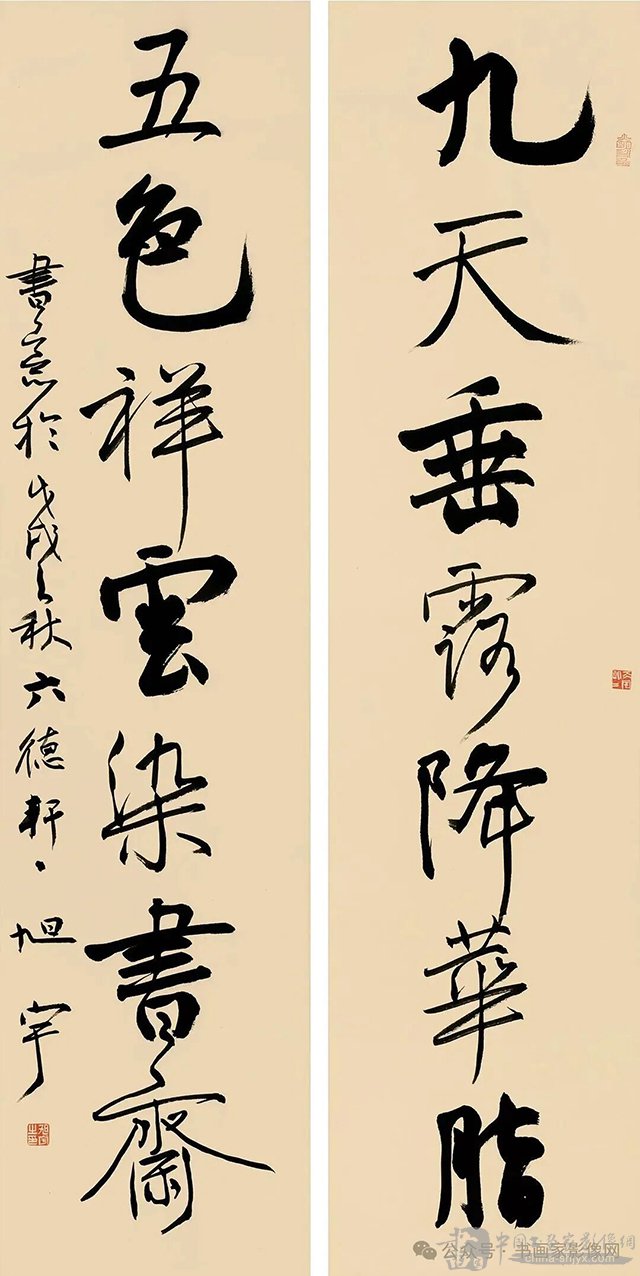 九天垂露降華脂
五色祥雲染書齋
書意於戊戌之秋六德軒、旭宇
公众号·书画家影像网
www.china-shjyx.com